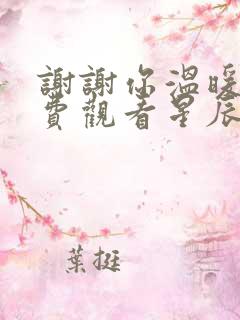 謝謝你溫暖
費觀看星辰
葉挺